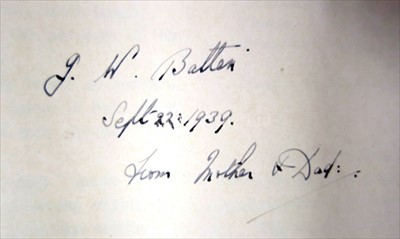 G. W. Batten
Sept 22: 1939.
from Mother & Dad:.